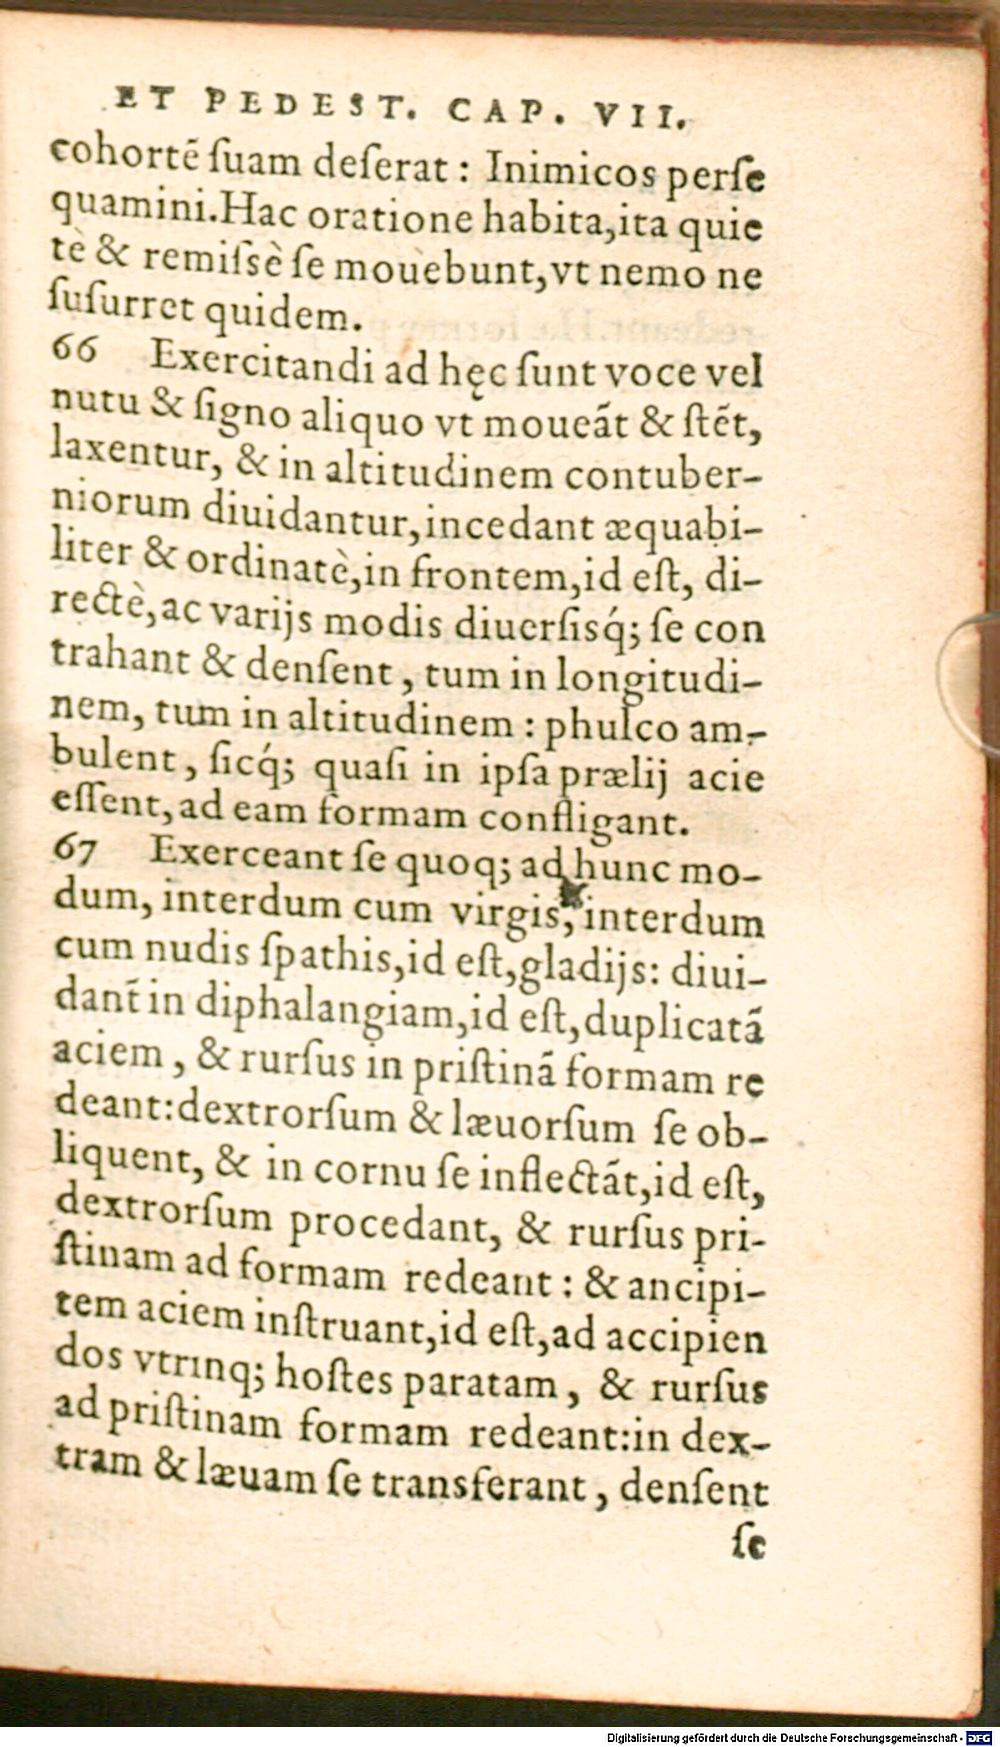 ET PEDEST. CAP. VII.
cohortẽ ſuam deſerat : Inimicos perſe
quamini.Hac oratione habita,ita quie
tè & remiſsè ſe mouebunt,vt nemo ne
ſuſurret quidem.
66 Exercitandi ad hęc ſunt voce vel
nutu & ſigno aliquo vt moueãt & ſtẽt,
laxentur, & in altitudinem contuber-
niorum diuidantur,incedant æquabi-
liter & ordinatè,in frontem,id eſt, di-
rectè,ac varijs modis diuerſisq́; ſe con
trahant & denſent , tum in longitudi-
nem, tum in altitudinem : phulco am-
bulent , ſicq́; quaſi in ipſa prælij acie
eſſent,ad eam formam confligant.
67 Exerceant ſe quoq; ad hunc mo-
dum, interdum cum virgis, interdum
cum nudis ſpathis,id eſt,gladijs: diui-
dant̃ in diphalangiam,id eſt,duplicatã
aciem , & rurſus in priſtinã formam re
deant:dextrorſum & læuorſum ſe ob-
liquent, & in cornu ſe inflectãt,id eſt,
dextrorſum procedant, & rurſus pri-
ſtinam ad formam redeant : & ancipi-
tem aciem inſtruant,id eſt,ad accipien
dos vtrinq; hoſtes paratam , & rurſus
ad priſtinam formam redeant:in dex-
tram & læuam ſe transferant , denſent
ſe
Digitalisierung gefördert durch die Deutsche Forschungsgemeinschaft - DFG